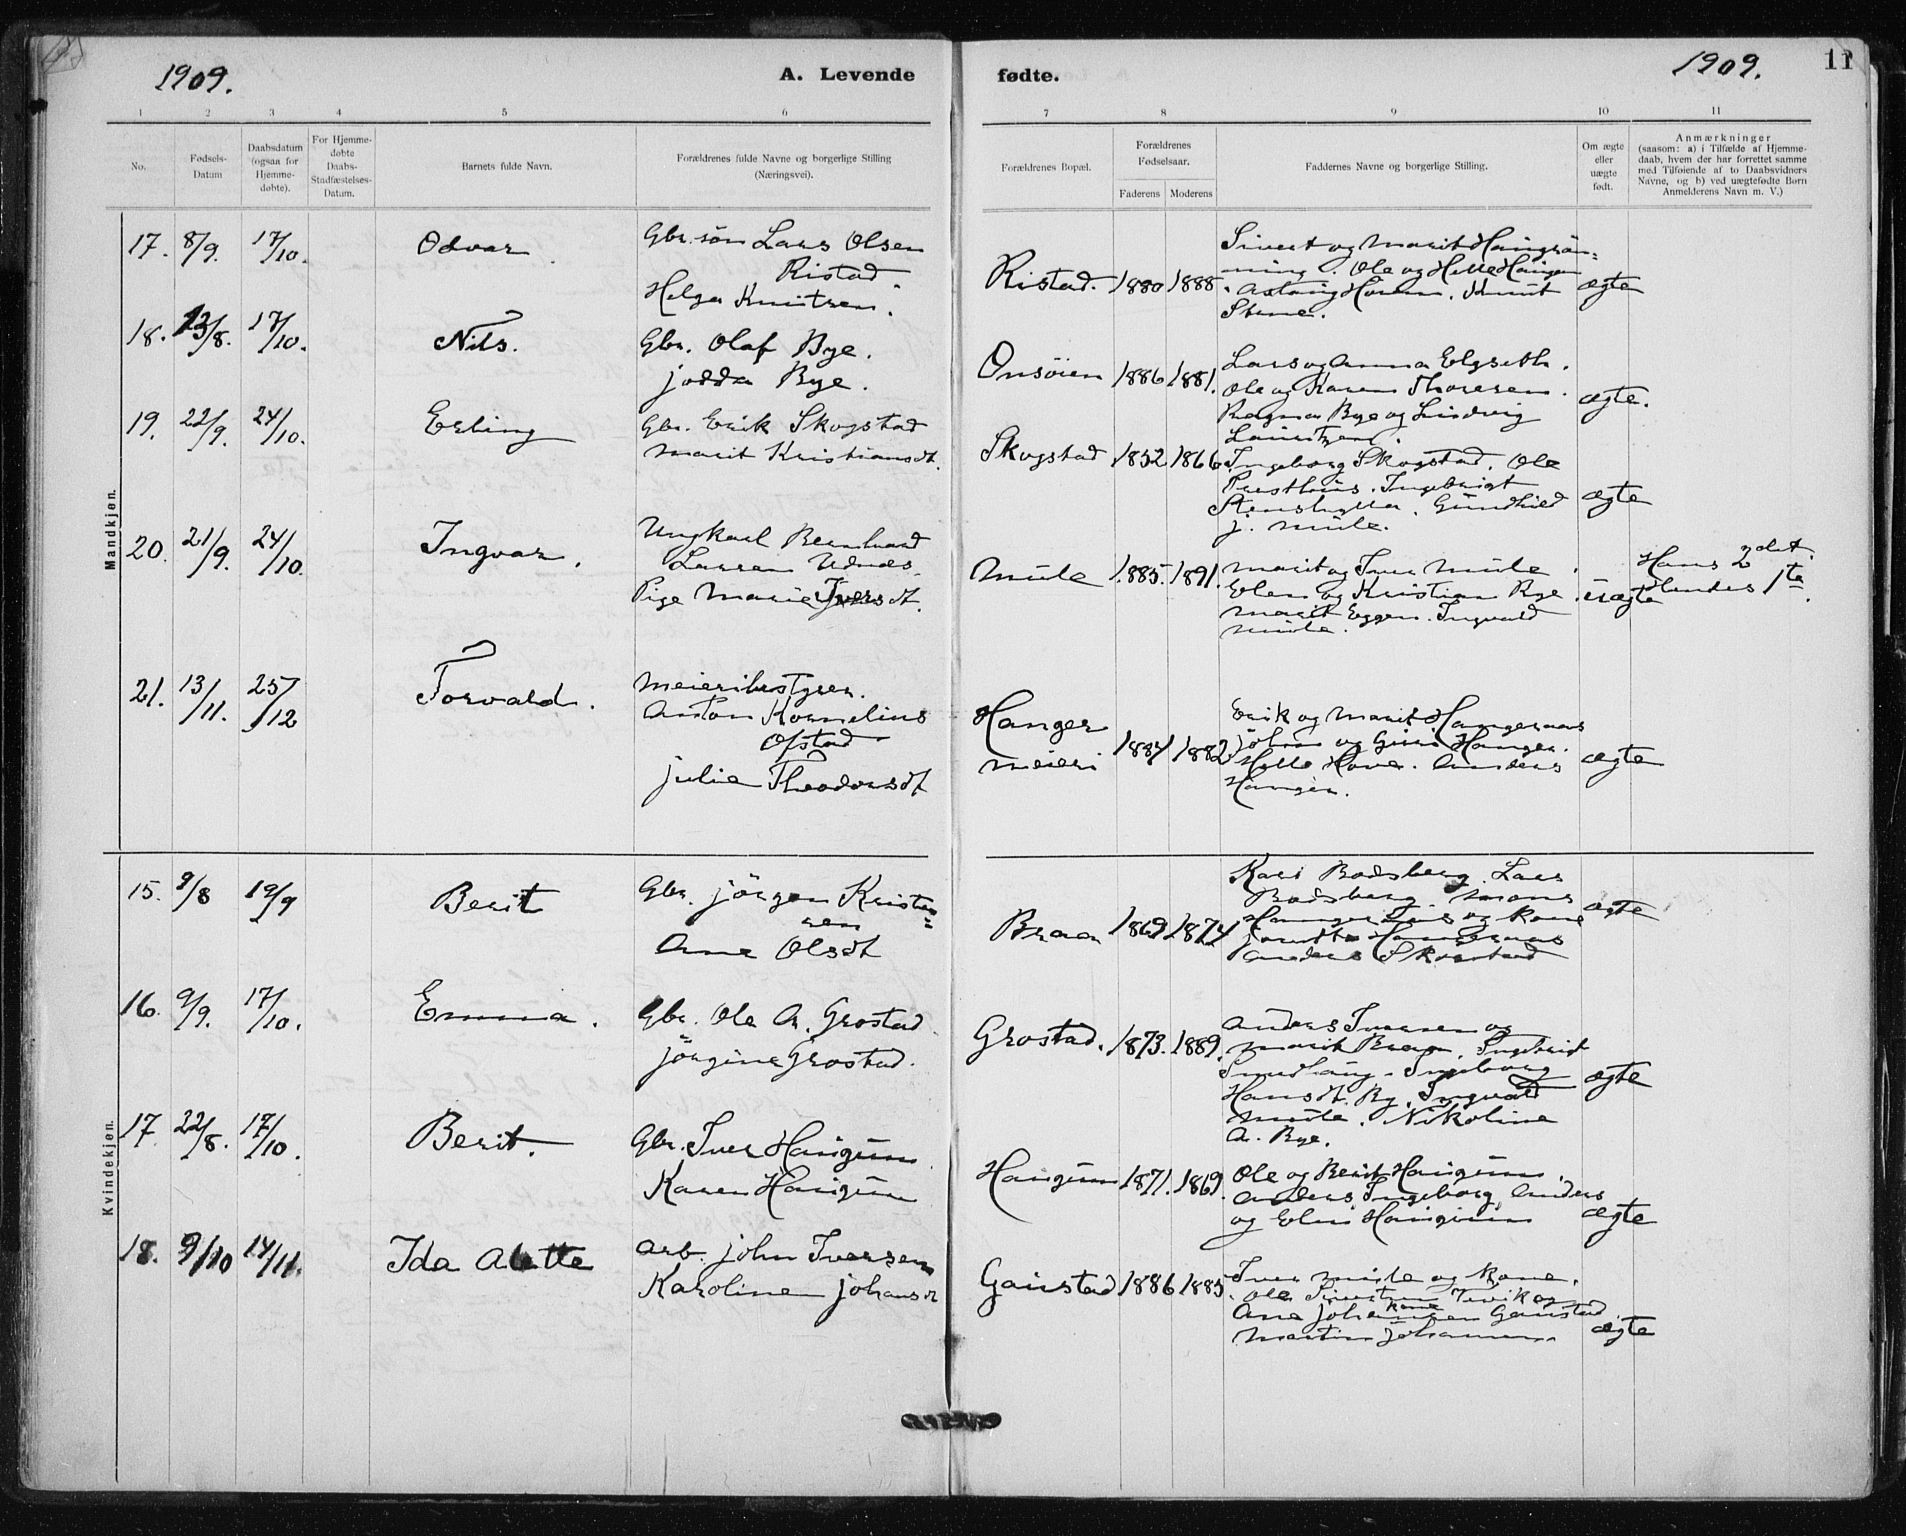 1909.
A. Levende
fødte.
1909.
11
1
2
3
4
5
6
7
8
9
10
11
No.
Fødsels-
Datum
Daabsdatum
(ogsaa for
Hjemme-
døbte).
For Hjemme-
døbte
Daabs-
Stadfæstelses-
Datum.
Barnets fulde Navn.
Forældrenes fulde Navne og borgerlige Stilling
(Næringsvei).
Forældrenes Bopæl.
Forældrenes
Fødselsaar.
Faderens
Moderens
Faddernes Navne og borgerlige Stilling.
Om ægte
eller
uægte
født.
Anmærkninger
(saasom: a) i Tilfælde af Hjemme-
daab, hvem der har forrettet samme
med Tilføiende af to Daabsvidners
Navne, og b) ved uægtefødte Børn
Anmelderens Navn m. V.)
Mandkjøn.
17. 8/9. 17/10. Odvar.
Gbr. søn Lars Olsen
Ristad.
Helga Knutsen.
Ristad. 1880 1888.
Sivert og Marit
Ole og Helle
Knut
Stene.
ægte
18. 13/8. 17/10. Nils.
Gbr. Olaf Bye.
Jodda Bye.
Onsöien 1886 1881.
Lars og Anna Elgseth.
Ole og Karen Thoresen.
Ragna Bye og Ludvig
Lauritzen.
ægte.
19. 22/9. 24/10. Erling
Gbr. Erik Skogstad
Marit Kristiansdt.
Skogstad 1852 1866
Ingeborg Skogstad. Ole
Presthus. Ingebrigt
Gundhild
J. Mule.
ægte
20. 21/9. 24/10. Ingvar.
Ungkarl Bernhard
Larsen Udnæs.
Pige Marie Iversdt.
Mule 1885. 1891.
Marit og Iver Mule.
Elen og Kristian Rye.
Marit Eggen. Ingvald
Mule.
uægte
Hans 2det.
Hendes 1te.
21. 13/11. 25/12 Torvald.
Meieribestyrer.
Anton Kornelius
Ofstad
Julie Theodorsdt
Hanger
meieri 1884 1882
Erik og Marit Hangeraas
Johan og Guri Hanger.
Helle Anders
Hanger.
ægte
Kvindekjøn.
15. 9/8 19/9 Berit
Gbr. Jörgen Kristen=
sen
Ane Olsdt
Braa 1869 1874
Kari Bodsberg. Lars
Bodsberg. Mons
Hanger og Kone
Anders Skogstad
ægte
16. 9/9. 17/10. Emma.
Gbr. Ole A. Grostad
Jörgine Grostad.
Grostad. 1873. 1889.
Anders Iversen og
Marit Ingebrigt
Ingeborg
Hansdt. By. Ingvald
Mule. Nikoline
A. Bye.
ægte
17 22/8. 17/10. Berit.
Gbr. Iver Haugum
Karen Haugum
Haugum 1871. 1869.
Ole og Berit Haugum.
Anders Ingeborg Anders
og Elen Haugum
ægte
18. 9/10 14/11. Ida Alette
Arb. John Iversen
Karoline Johansdt
Gaustad 1886 1885
Iver Mule og Kone.
Ole og
kone
Ane Johansen Gaustad
Martin Johansen.
ægte